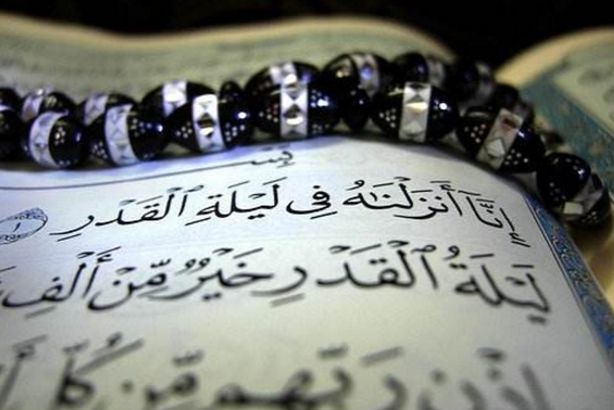 إِنَّآ أَنزَلْنَٰهُ فِى لَيْلَةِ ٱلْقَدْرِ ١
لَيْلَةُ ٱلْقَدْرِ خَيْرٌ مِّنْ أَلْفِ
إِذْنِ رَبِّهِم مِّن كُلِّ